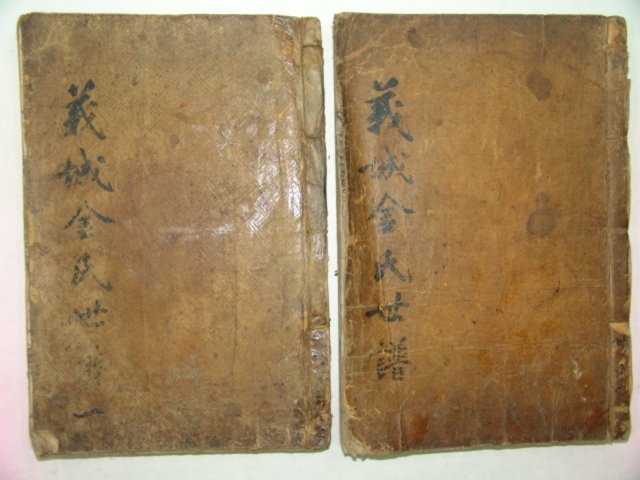 義城金氏世譜一
義城金氏世譜